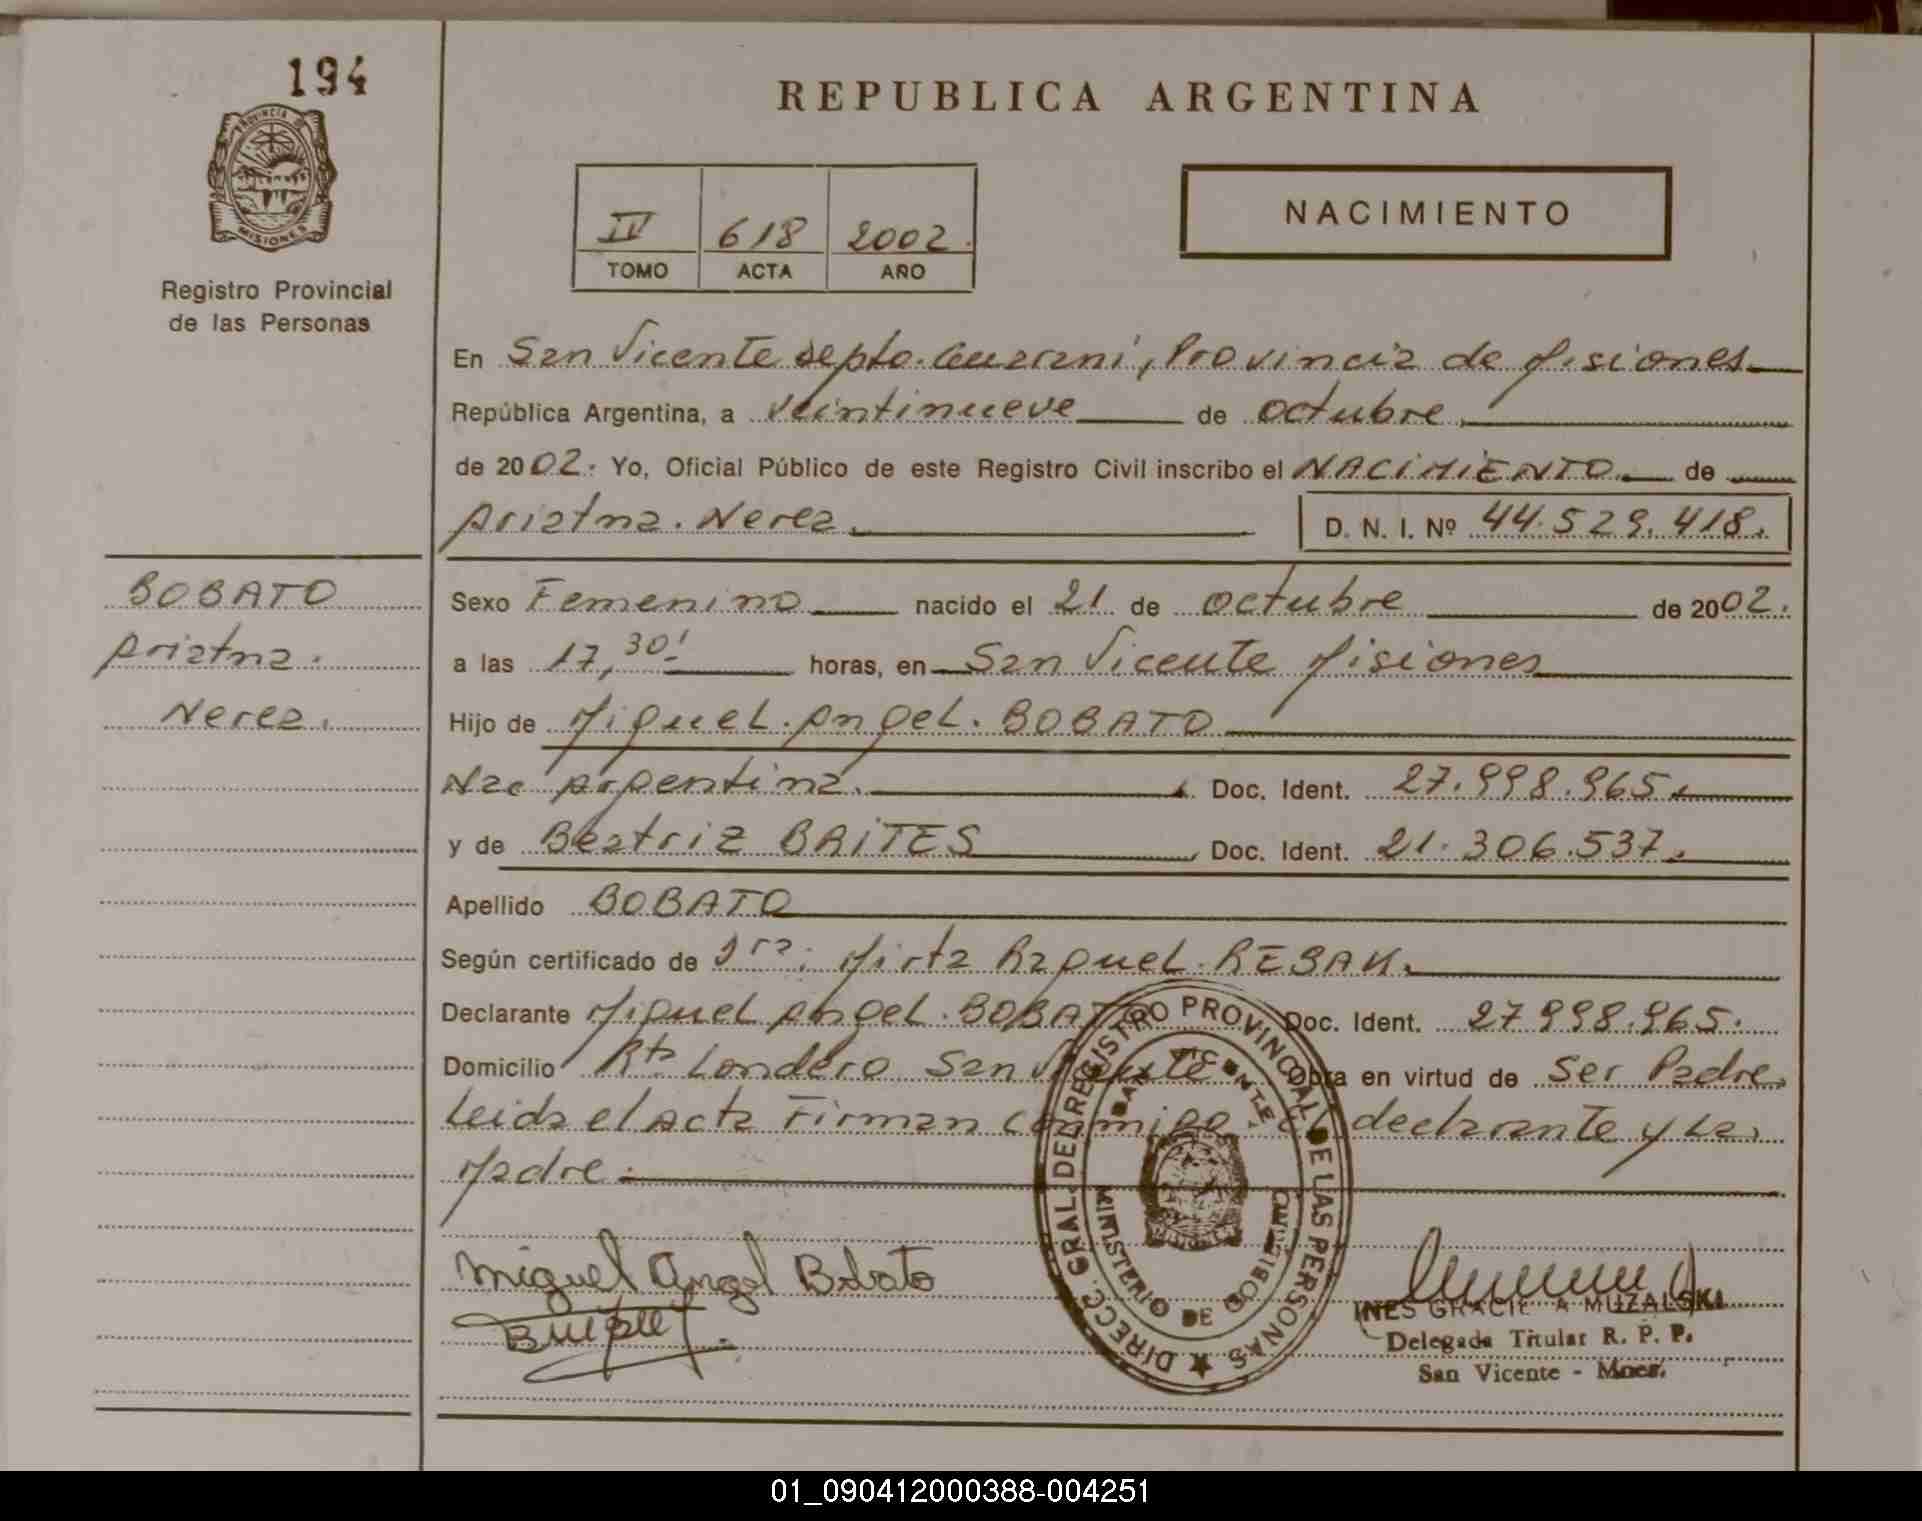 194
PROVINCIA DE
MISIONES
Registro Provincial
de las Personas
REPUBLICA ARGENTINA
IV 618 2002.
TOMO ACTA AÑO
NACIMIENTO
En San Vicente depto. Guarani, Provincia de Misiones
República Argentina, a veintinueve de octubre
de 2002. Yo, Oficial Público de este Registro Civil inscribo el NACIMIENTO de
Ariatna. Nerea. D. N. I. Nº 44.529.418.
BOBATO
Ariatna.
Nerea.
Sexo Femenino nacido el 21 de octubre de 2002.
a las 17,30' horas, en San Vicente Misiones
Hijo de Miguel. Angel. BOBATO
Nac Argentina. Doc. Ident. 27.998.965.
y de Beatriz BAITES Doc. Ident. 21.306.537.
Apellido BOBATO
Según certificado de Dra. Mirta Raquel. REBAK.
Declarante Miguel Angel. BOBATO Doc. Ident. 27998.965.
Domicilio Rta Londero San Vicente Obra en virtud de ser Padre
Leida el Acta Firman conmigo el declarante y La
Madre.
Miguel Angel Bobato
DIRECC. GRAL. DEL REGISTRO PROVINCIAL DE LAS PERSONAS
SAN VICENTE
MINISTERIO DE GOBIERNO
INES GRACIELA MUZALSKI
Delegada Titular R. P. P.
San Vicente - Mnes.
01_090412000388-004251